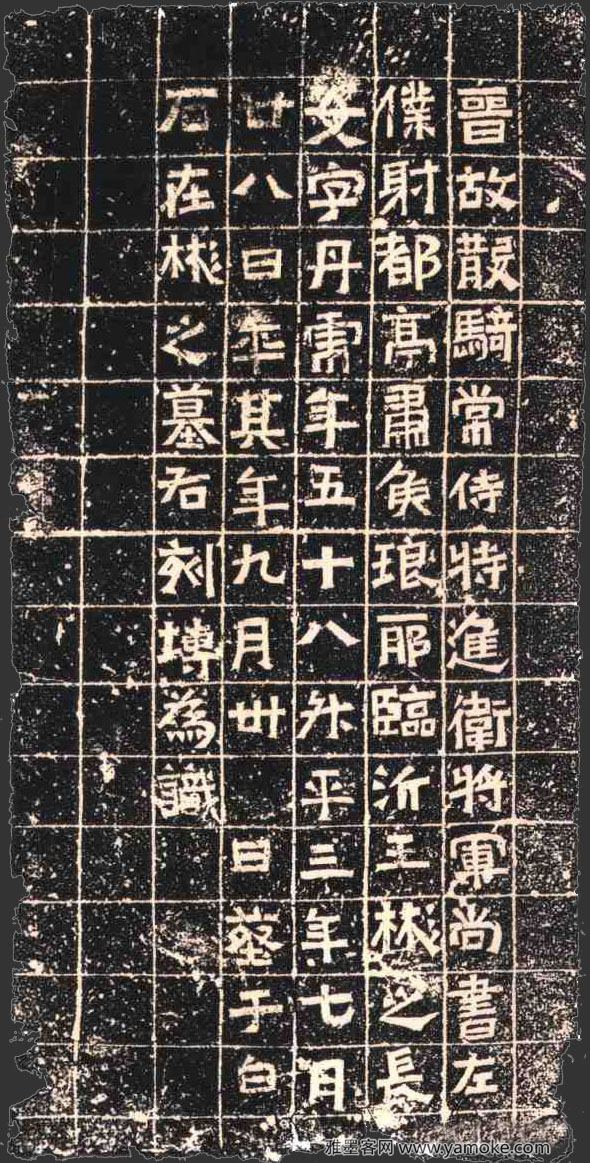 晉故散騎常侍特進衛將軍尚書左
僕射都亭肅侯琅耶臨沂王彬之長
女字丹虎年五十八升平三年七月
廿八日卒其年九月卅 日葬于白
石在彬之墓右刻塼為識
雅墨客网 www.yamoke.com